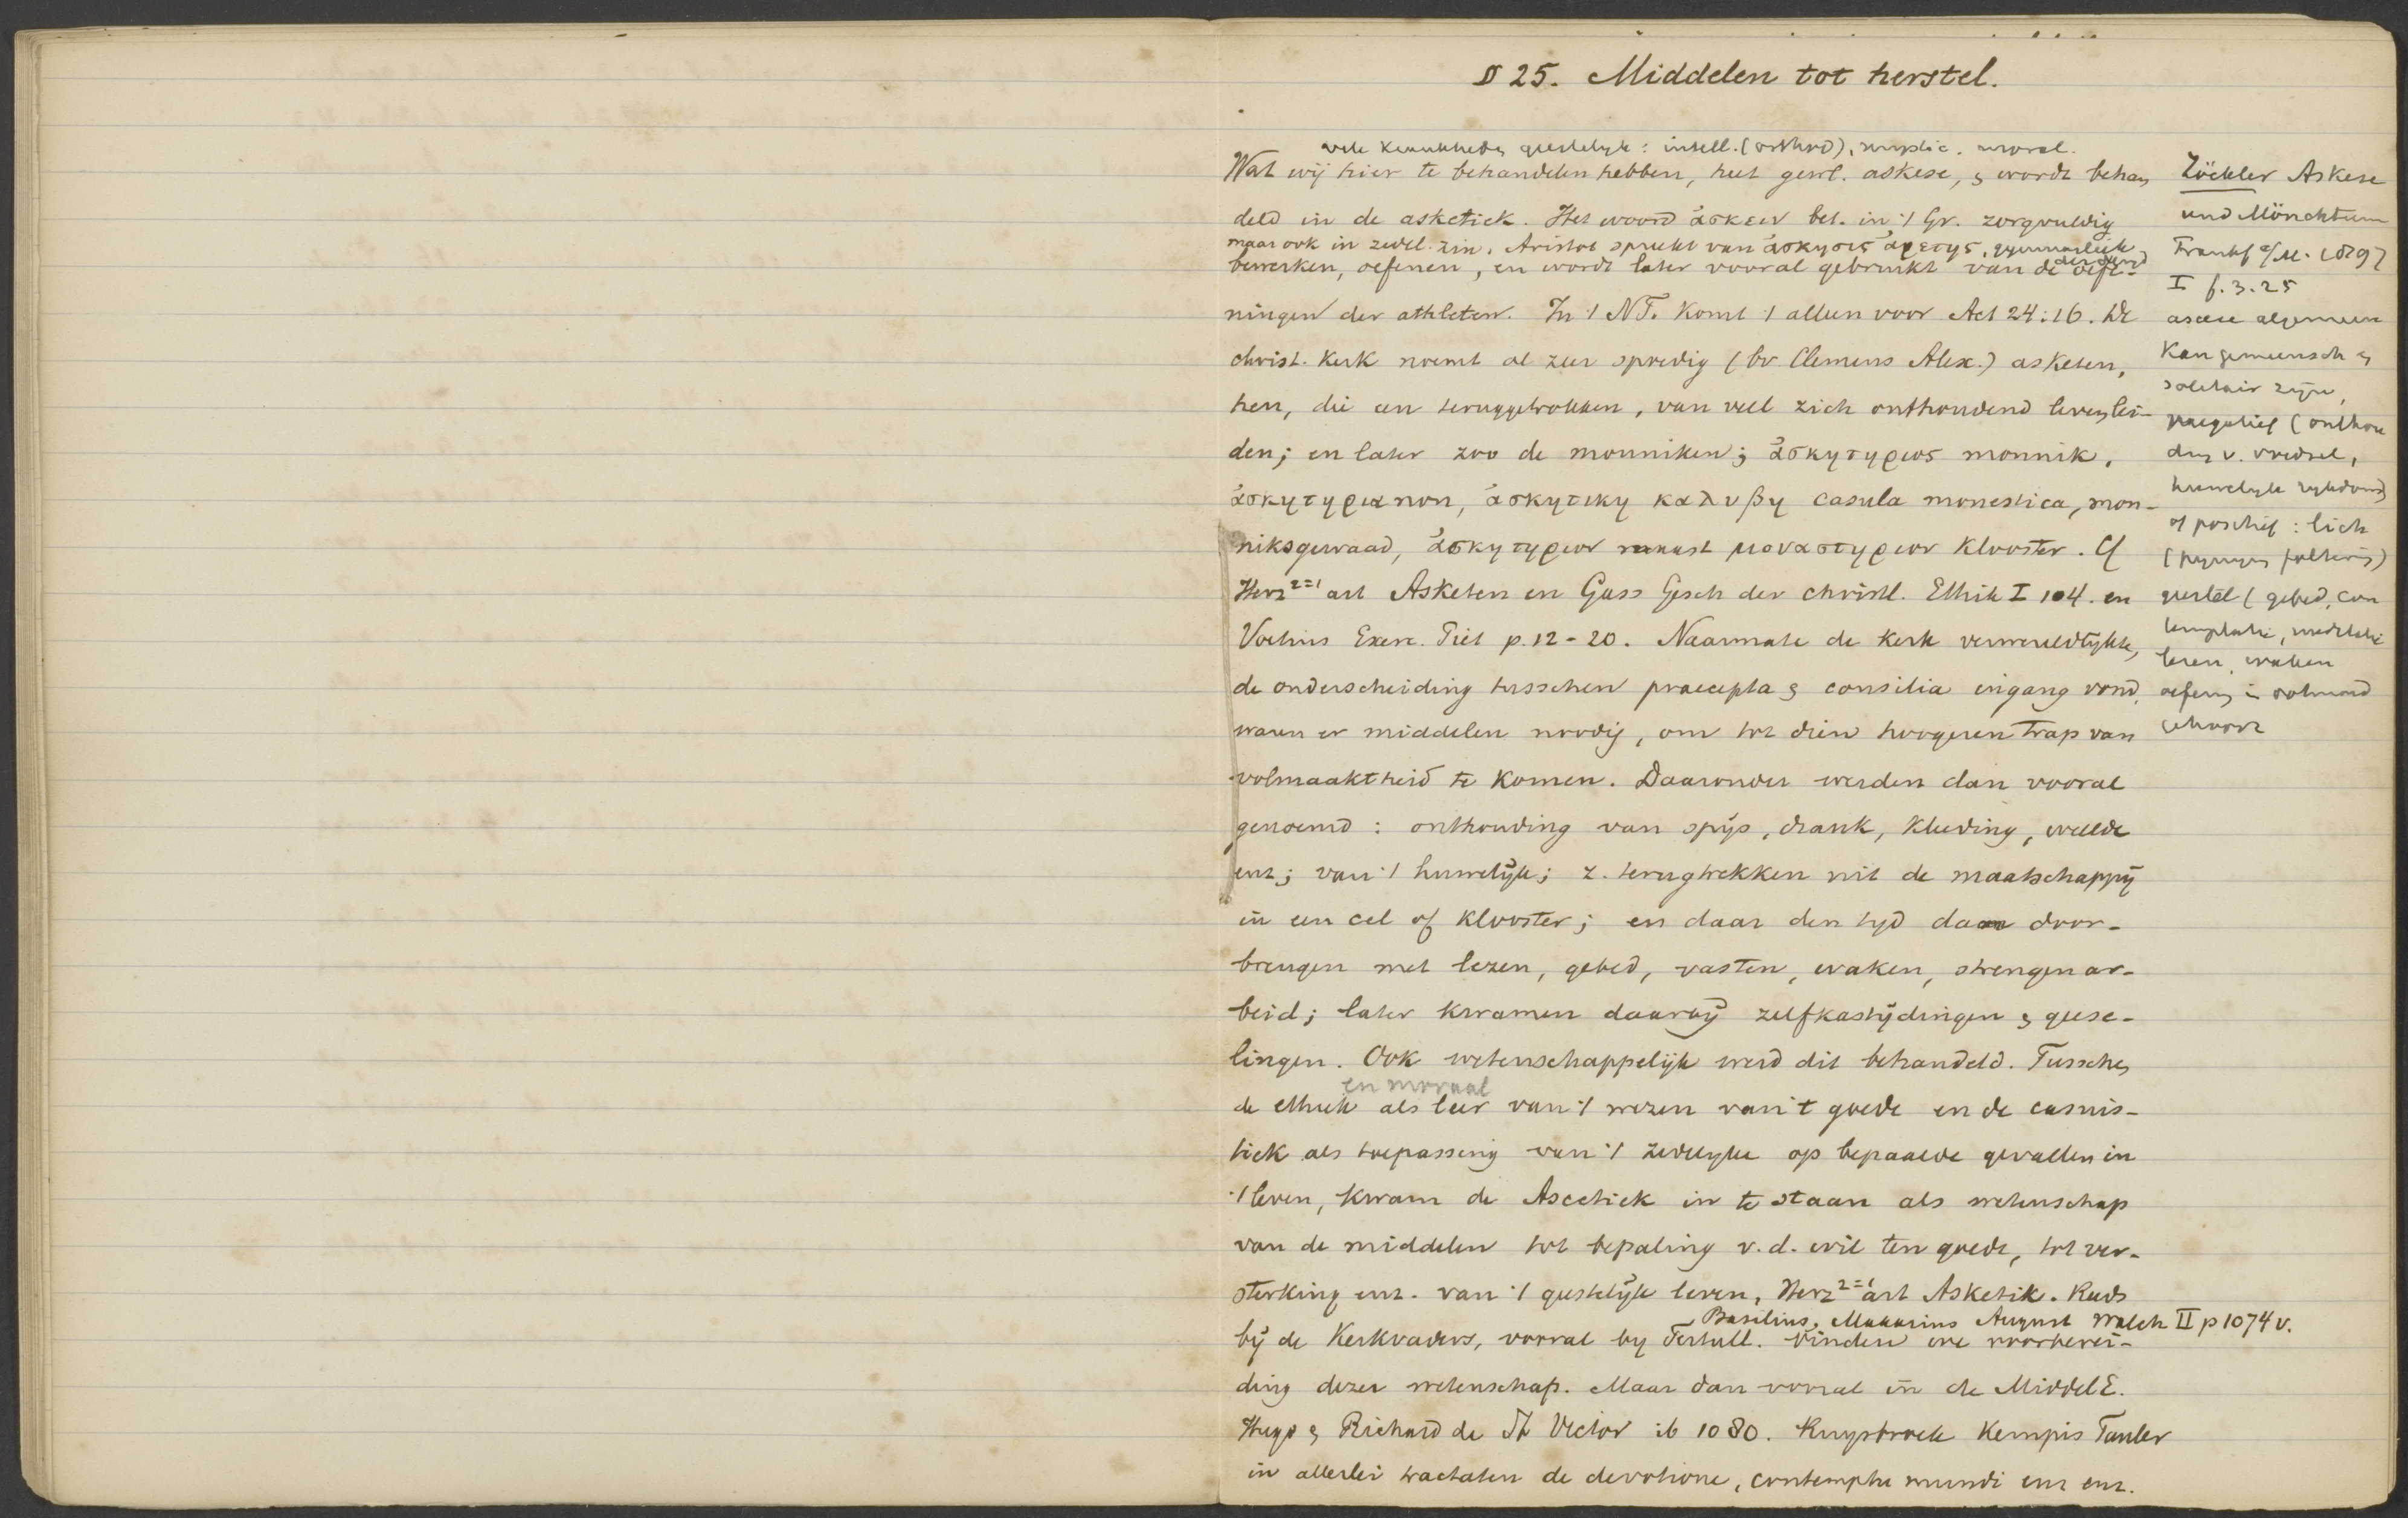 § 25. Middelen tot herstel.
geestelyke: intell. (orthod), mystic. moral.
Wat wij hier te behandelen hebben, heet gewl. askese, en wordt behan
deld in de asketiek. Het woord ἀσκειν bet. in 't Gr. zorgvuldig
maar ook in zedel. zin. Aristot spreekt van ἀσκησις ἀρετης,
bewerken, oefenen, en wordt later vooral gebruikt van de oefe-
ningen der athleten. In 't NT. komt 't alleen voor Act 24:16. De
christ. kerk noemt al zeer spoedig (bv Clemens Alex.) asketen,
hen, die een teruggetrokken, van veel zich onthoudend leven lei-
den; en later zoo de monniken; ἀσκητηριος monnik,
ἀσκητηρια non, ἀσκητικη καλυβη casula monestica, mon-
niksgewaad, ἀσκητηριον naast μοναστηριον klooster. Cf
Herz²⁼¹ art Asketen en Gass Gesch der christl. Ethik I 104. en
Voetius Exerc. Piet p. 12-20. Naarmate de kerk verwereldlykte,
de onderscheiding tusschen praecepta en consilia ingang vond,
waren er middelen noodig, om tot dien hoogeren trap van
volmaaktheid te komen. Daaronder werden dan vooral
genoemd: onthouding van spijs, drank, kleeding, weelde
enz; van 't huwelijk; z. terugtrekken uit de maatschappij
in een cel of klooster; en daar den tyd daar door-
brengen met lezen, gebed, vasten, waken, strengen ar-
beid; later kwamen daarbij zelfkastijdingen en geese-
lingen. Ook wetenschappelijk werd dit behandeld. Tusschen
en moraal
de ethiek als leer van 't wezen van 't goede en de casuis-
tiek als toepassing van 't zedelyke op bepaalde gevallen in
't leven, kwam de Ascetiek in te staan als wetenschap
van de middelen tot bepaling v. d. wil ten goede, tot ver-
sterking enz. van 't geestelijk leven, Herz²⁼¹ art Asketik. Reeds
Basilius, Makarius August Walch II p 1074 v.
bij de Kerkvaders, vooral by Tertull. vinden we voorberei-
ding dezer wetenschap. Maar dan vooral in de MiddelE.
Hugo en Richard de St Victor ib 1080. Ruysbroek Kempis Tauler
in allerlei tractaten de devotione, contemptu mundi enz enz.
Zöckler Askese
und Mönchtum
Frankf a/M. 1897
I f. 3.25
ascese algemeen
kan gemeensch en
solitair zijn,
negatief (onthou
ding v. voedsel,
huwelyk rykdom)
of positief: lich
geestel (gebed, con
templatie, meditatie
lezen, waken
oefening in ootmoed
gehoorz